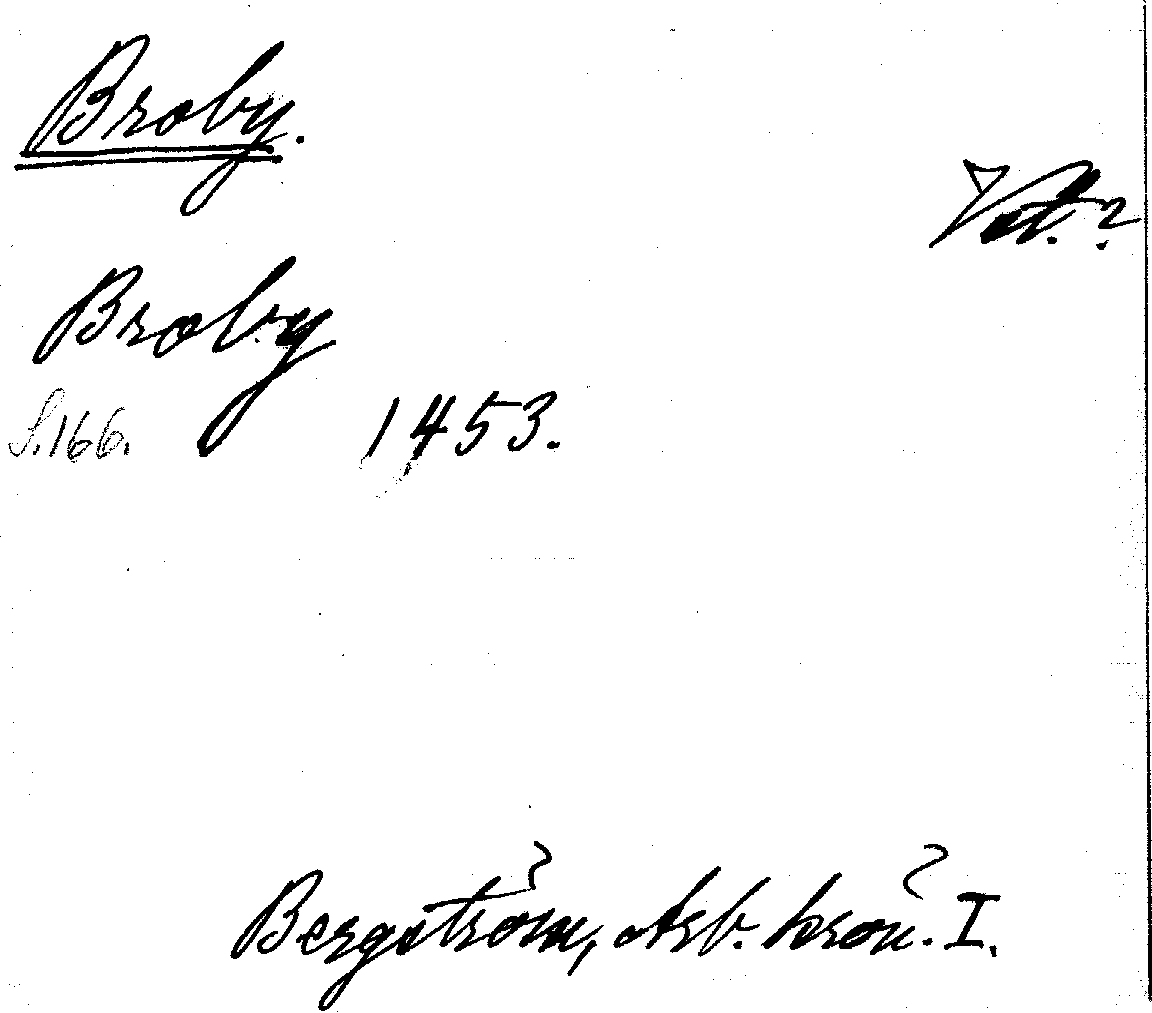 Broby.
Vet.?
Broby
S.166. 1453.
Bergström, Arb. krön. I.